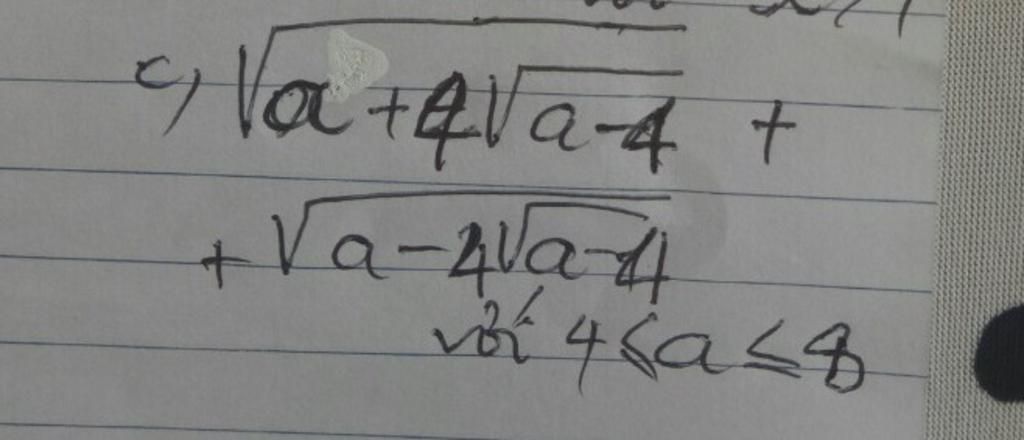 c, √(a + 4√(a - 4)) +
+ √(a - 4√(a - 4))
với 4 ≤ a ≤ 8